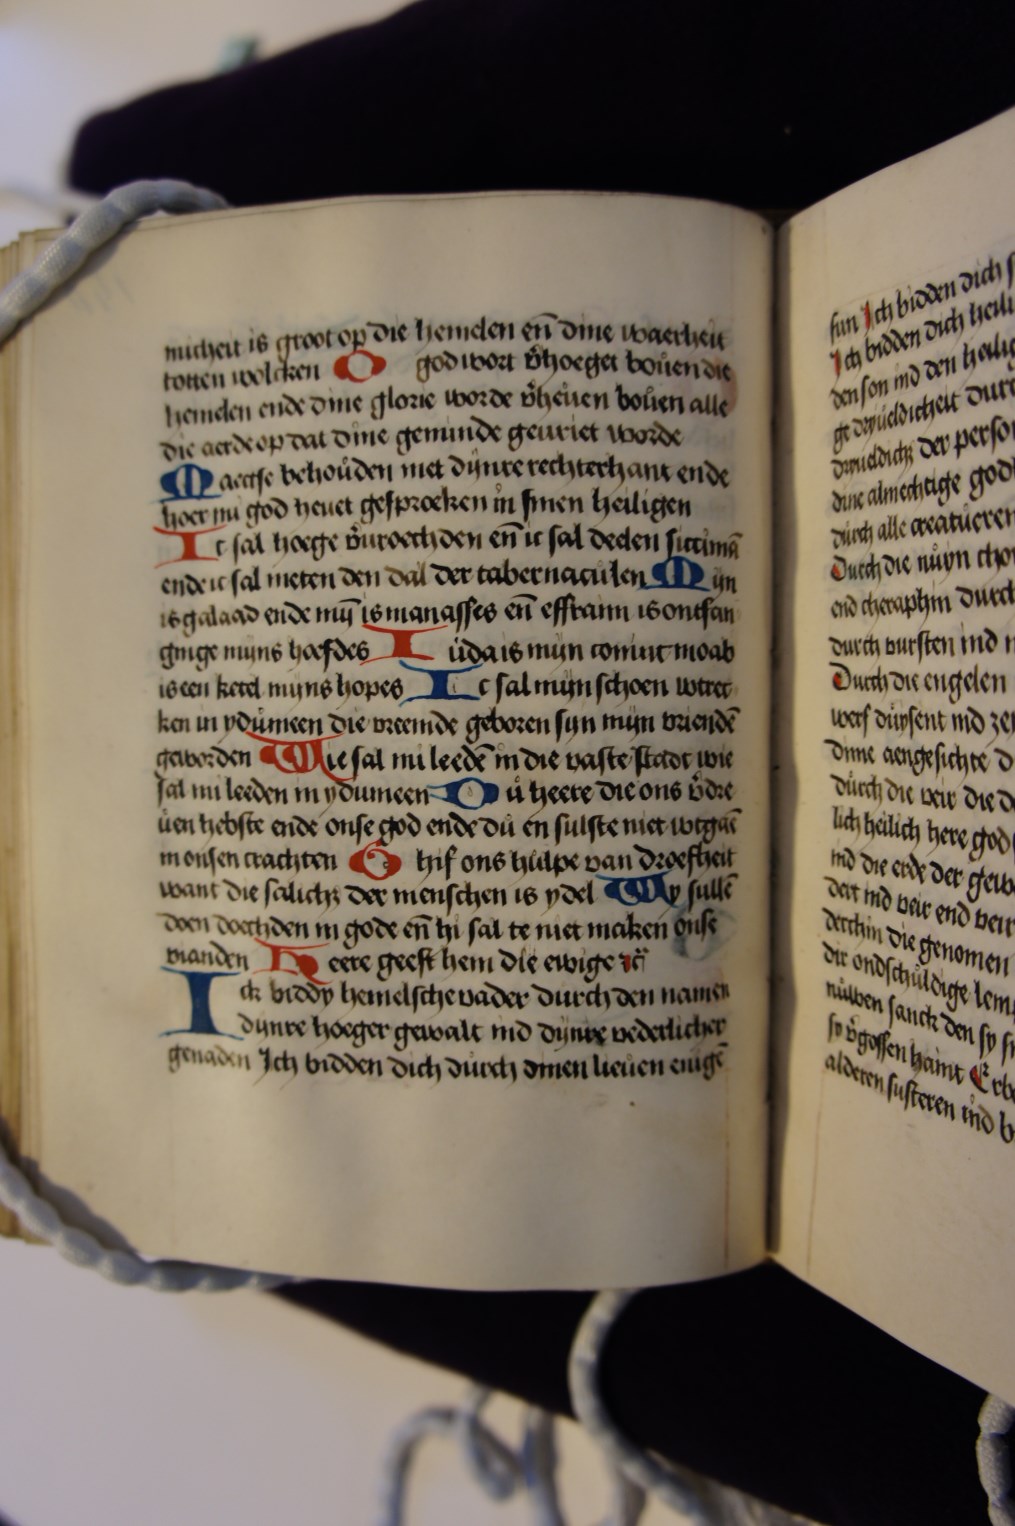 nicheit is groot op die hemelen en̄ dine waerheit
totten wolcken O god wort v̉hoeget bouen die
hemelen ende dine glorie worde v̉heuen bouen alle
die aerde op dat dine geminde geuriet worde
Maectse behouden met dynre rechterhant ende
hoer mi god heuet gesproeken in sinen heiligen
Ic sal hoege v̉uroechden en̄ ic sal delen siccimā
ende ic sal meten den dal der tabernaculen Mijn
is galaad ende myn̄ is manasses en̄ effraim is ontfan
ginge mijns hoefdes Iuda is mijn coninc moab
is een ketel mijns hopes Ic sal mijn schoen wtrec
ken in ydumeen die vreemde geboren sijn mijn vriendē
geworden Wie sal mi leedē in die vaste stadt wie
sal mi leeden in ydumeen Du heere die ons v̉dre
uen hebste ende onse god ende du en sulste niet wtgaē
in onsen crachten Ghif ons hulpe van droefheit
want die salichz der menschen is ydel Wy sullē
doen doechden in gode en̄ hi sal te niet maken onse
vianden Heere geeft hem die ewige rc̄
Ick biddy hemelsche vader durch den namen
dynre hoeger gewalt ind dynre vederlicher
genaden Ich bidden dich durch dinen lieuen enigē
sun Ich bidden dich
Ich bidden dich heili
den son ind den heilig
ge dryueldicheit durc
drieueldichz der perso
dine almechtige god
durch alle creatueren
Durch die nuyn cho
end cheraphin durch
durch vursten ind
Durch die engelen
werf duysent ind ze
dinne aengesichte d
durch die veir die d
lich heilich here god
ind die erde der gew
deir ind veir end veir
derthin die genomen
dir ondschuldige lem
nuwen sanck den sy
sy v̉gossen haint Erbe
alderen susteren ind b